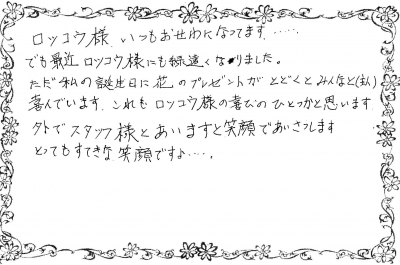 ロッコウ様 いつもおせわになってます.....
でも最近ロッコウ様にも縁遠くなりました。
ただ私の誕生日に花のプレゼントがとどくとみんなと(主人)
喜んでいます。これもロッコウ様の喜びのひとつかと思います
外でスタッフ様とあいますと笑顔であいさつします
とってもすてきな笑顔ですよ....。